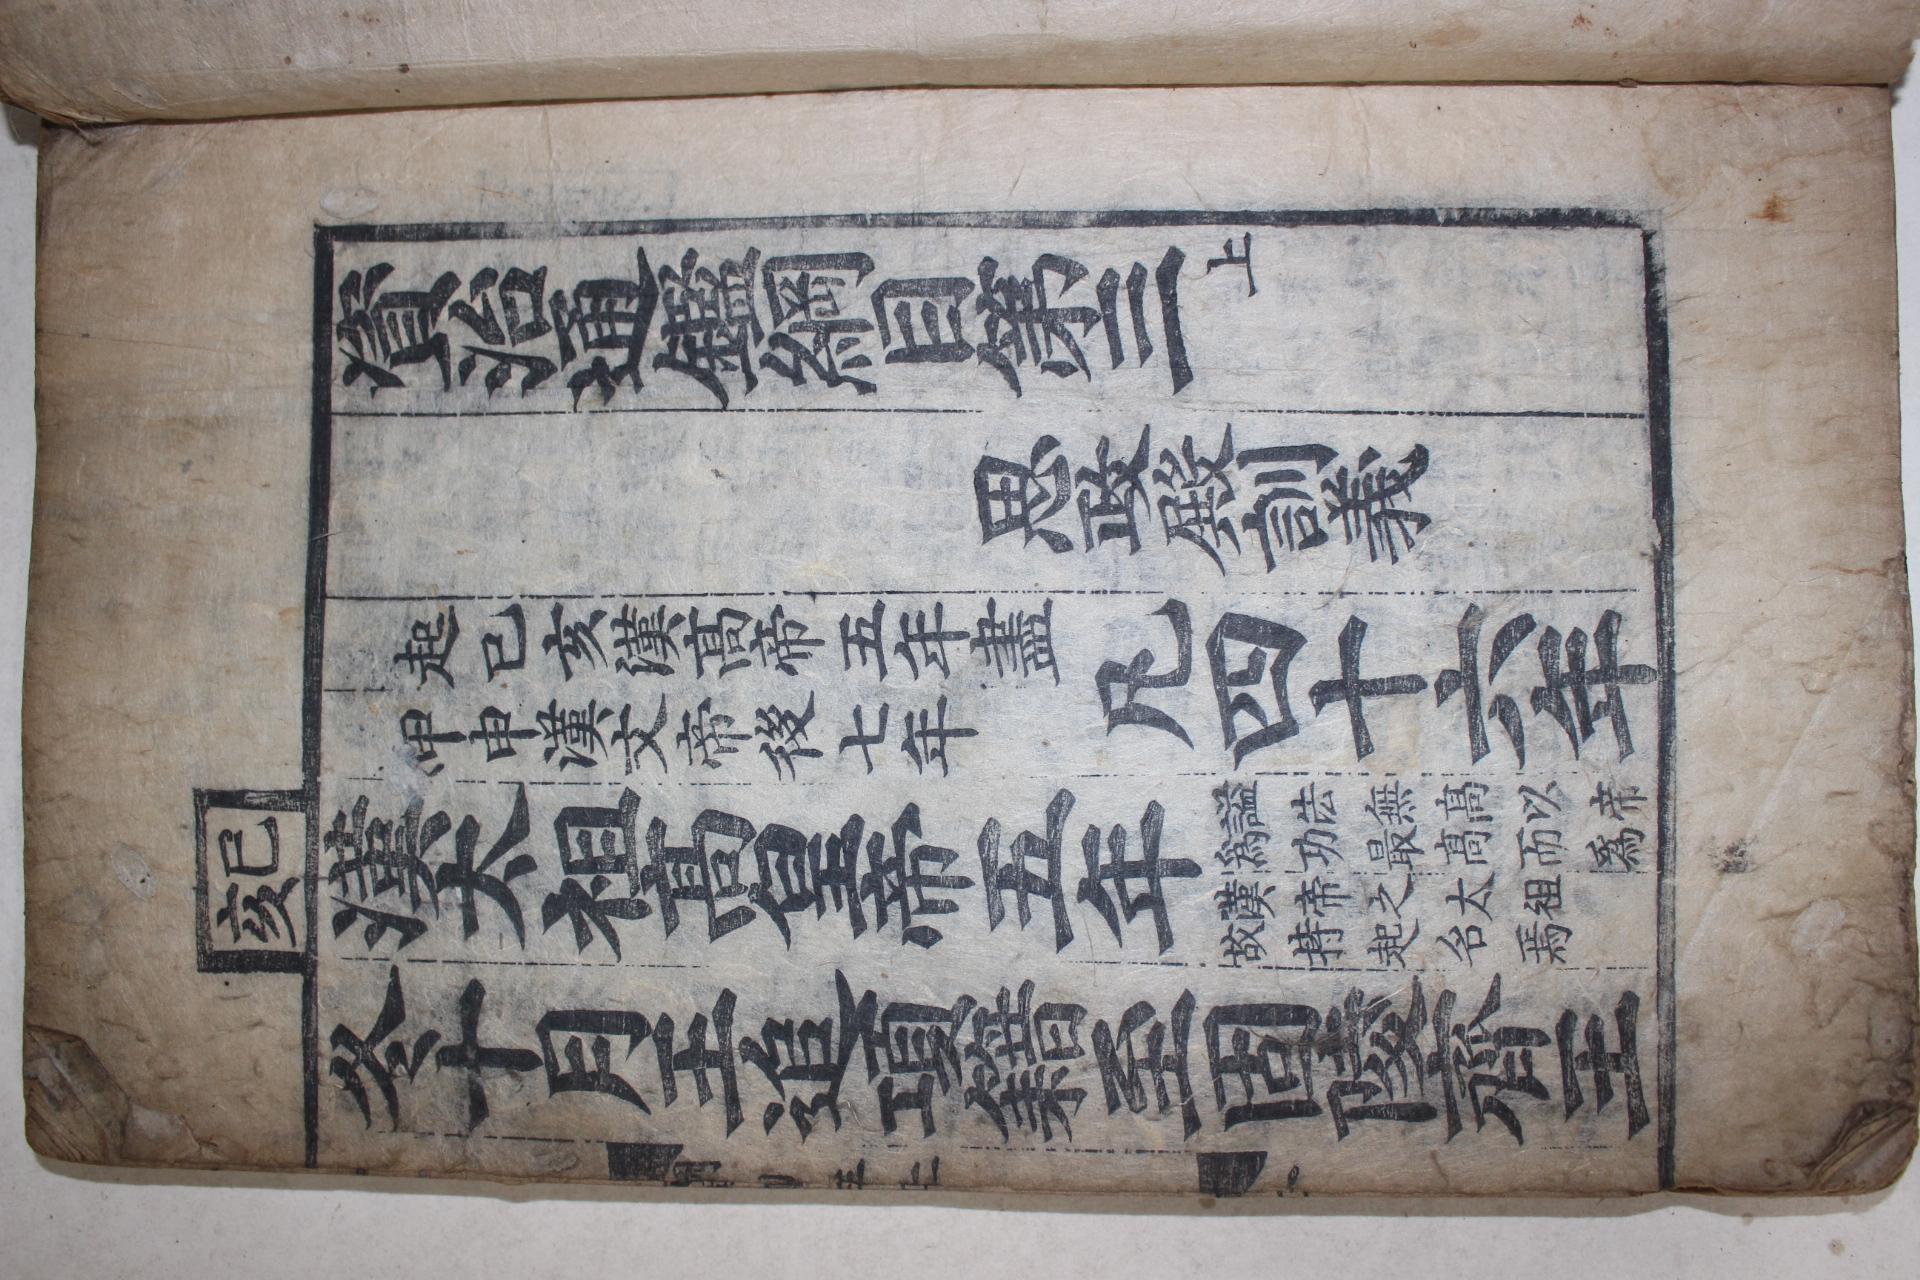 資治通鑑綱目第三上
思政殿訓義
起己亥漢高帝五年盡
甲申漢文帝後七年
凡四十六年
己亥
漢太祖高皇帝五年
謚法無高以帝
為功最高而為
漢帝之太祖
故特起名焉
冬十月王追項籍至固陵齊王